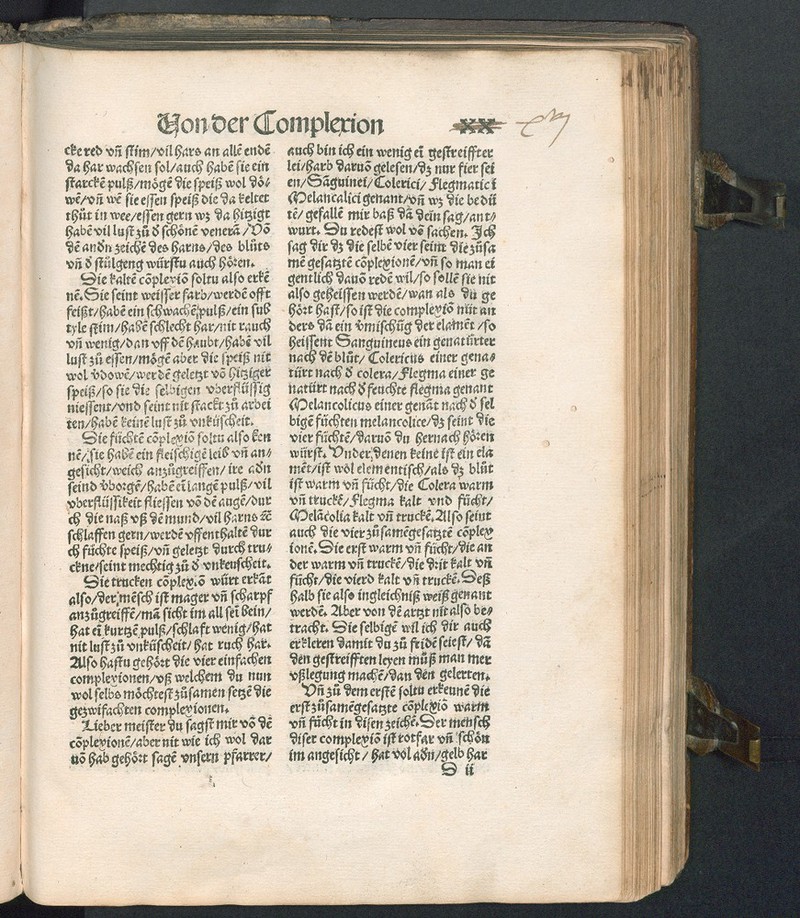 Von der Complexion
XX
cke red vñ stim/vil hars an allē endē
da har wachsen sol/auch habē sie ein
starckē pulß/mögē die speiß wol dö-
wē/vñ wē sie essen speiß die da keltet
thůt in wee/essen gern wz da hitzigt
habē vil lust zů d schönē venera/Vō
dē andn zeichē des harns/des blůts
vñ d stůlgeng würstu auch hören.
Die kaltē cōplexiō soltu also erkē
nē. Sie seint weisser farb/werdē offt
feißt/habē ein schwachē pulß/ein sub
tyle stim/habē schlecht har/nit rauch
vñ wenig/dan vff dē haubt/habē vil
lust zů essen/mögē aber die speiß nit
wol vdowē/werdē geletzt vō hitziger
speiß/so sie die selbigen vberflüssig
niessent/vnd seint nit starck zů arbei
ten/habē keinē lust zů vnküscheit.
Die füchtē cōplexiō soltu also ken
nē/sie habē ein fleischigē leib vñ an-
gesicht/weich anzůgreiffen/ire adn
seind vborgē/habē eī langē pulß/vil
vberflüssikeit fliessen vō dē augē/dur
ch die naß vß dē mund/vil harns ꝛc̄
schlaffen gern/werdē vffenthaltē dur
ch füchte speiß/vñ geletzt durch tru-
ckne/seint mechtig zů d vnkeuscheit.
Die trucken cōplexiō würt erkāt
also/der mēsch ist mager vñ scharpf
anzůgreiffē/mā sicht im all sei bein/
hat eī kurtzē pulß/schlaft wenig/hat
nit lust zů vnküscheit/hat ruch har.
Also hastu gehört die vier einfachen
complexionen/vß welchem du nun
wol selbs möchtest zůsamen setzē die
gezwifachten complexionen.
Lieber meister du sagst mir vō dē
cōplexionē/aber nit wie ich wol dar
uō hab gehört sagē vnsern pfarrer/
auch bin ich ein wenig eī gestreiffter
lei/harb daruō gelesen/dz nur fier sei
en/Sāguinei/Colerici/Flegmatici
Melancalici genant/vñ wz die bedü
tē/gefallē mir baß dā dein sag/ant/
wurt. Du redest wol vō sachen. Ich
sag dir dz die selbē vier seint die zůsa
mē gesatztē cōplexionē/vñ so man ei
gentlich dauō redē wil/so sollē sie nit
also geheissen werdē/wan als du ge
hört hast/so ist die complexiō nüt an
ders dā ein vmischūg der elamēt/so
heissent Sanguineus ein genatürter
nach dē blůt/Colericus einer gena-
türt nach d colera/Flegma einer ge
natürt nach d feuchte flegma genant
Melancolicus einer genāt nach d sel
bigē füchten melancolice/dz seint die
vier füchtē/daruō du hernach hören
würst. Vnder denen keine ist ein ela
mēt/ist wol elementisch/als dz blůt
ist warm vñ fücht/die Colera warm
vñ truckē/Flegma kalt vnd fücht/
Melācolia kalt vñ truckē. Also seint
auch die vier zůsamēgesatztē cōplex
ionē. Die erst warm vñ fücht/die an
der warm vñ truckē/die drit kalt vñ
fücht/die vierd kalt vñ truckē. Deß
halb sie also ingleichniß weiß genant
werdē. Aber von dē artzt nit also be-
tracht. Die selbigē wil ich dir auch
erkleren damit du zů fridē seiest/dā
den gestreifften leyen můß man mer
vßlegung machē/dan den gelerten.
Vñ zů dem erstē soltu erkennē die
erst zůsamēgesatzte cōplexiō warm
vñ fücht in disen zeichē. Der mensch
diser complexiō ist rotfar vñ schön
im angesicht/hat vol adn/gelb har
D ii